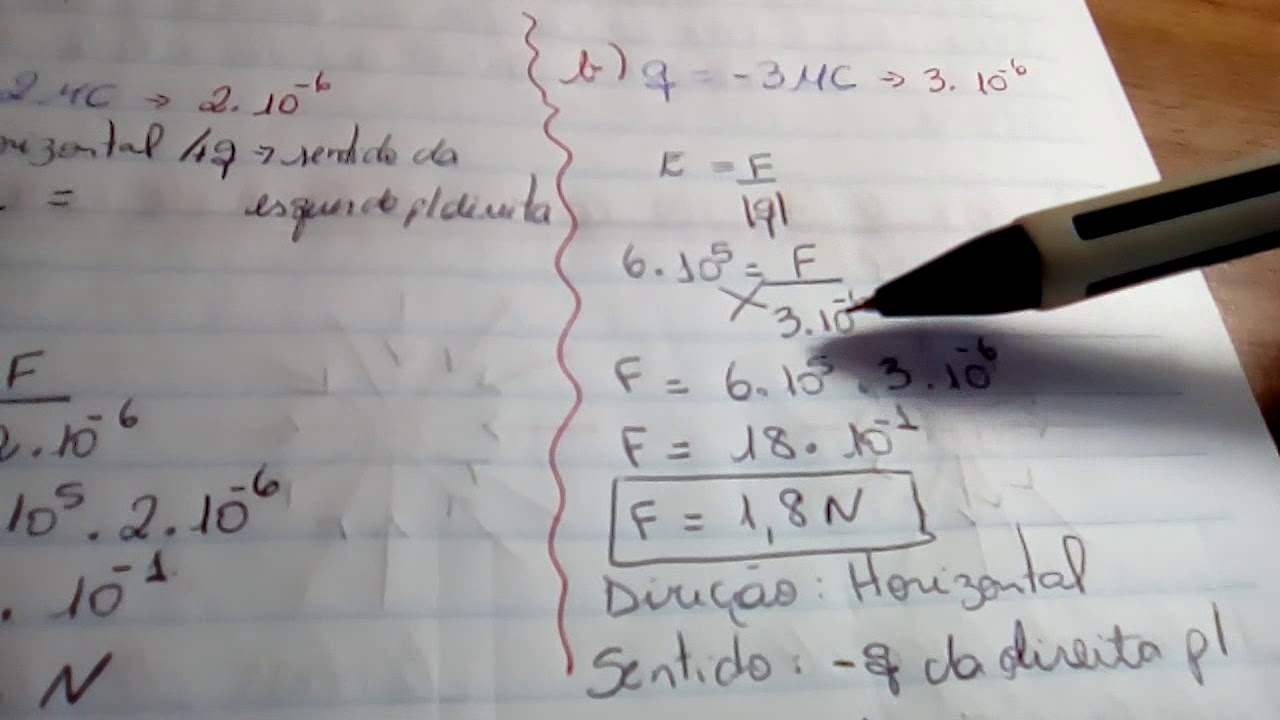 2.MC → 2.10⁻⁶
/+q → sentido da
=
esquerda p/direita
F
2.10⁻⁶
10⁵.2.10⁻⁶
. 10⁻¹
N
b) q = -3MC → 3.10⁻⁶
E = F
|q|
6.10⁵ = F
3.10⁻
F = 6.10⁵.3.10⁻⁶
F = 18.10⁻¹
F = 1,8N
Direção: Horizontal
Sentido: -q da direita p/